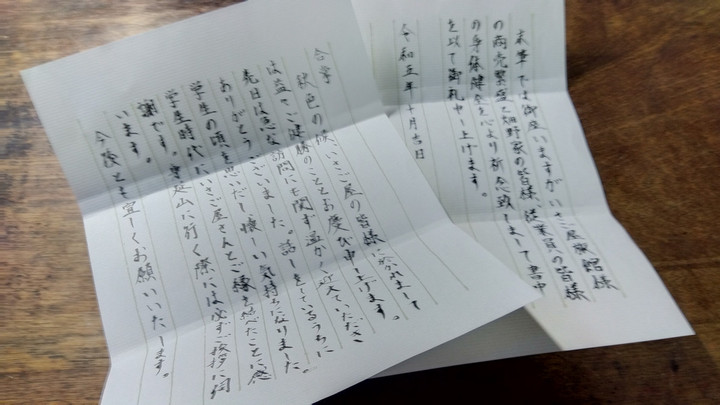 合掌
秋色の候、いさご屋の皆様にかれまして
は益々ご健勝のこととお慶び申し上げます。
先日は急な訪問にも関わず温かく迎えていただき
ありがとうございました。話しをしているうちに
学生の頃を思いだし、懐しい気持ちになりました。
学生時代にいさご屋さんとご縁を結べたことに感
謝です。身延山に行く際には必ずご挨拶に伺
います。
今後とも宜しくお願いいたします。
末筆では御座いますがいさご屋 様
の商売繁盛と 野家の皆様、従業員の皆様
の身体健全を心より祈念致しまして書中
を以て御礼申し上げます。
令和五年十月吉日